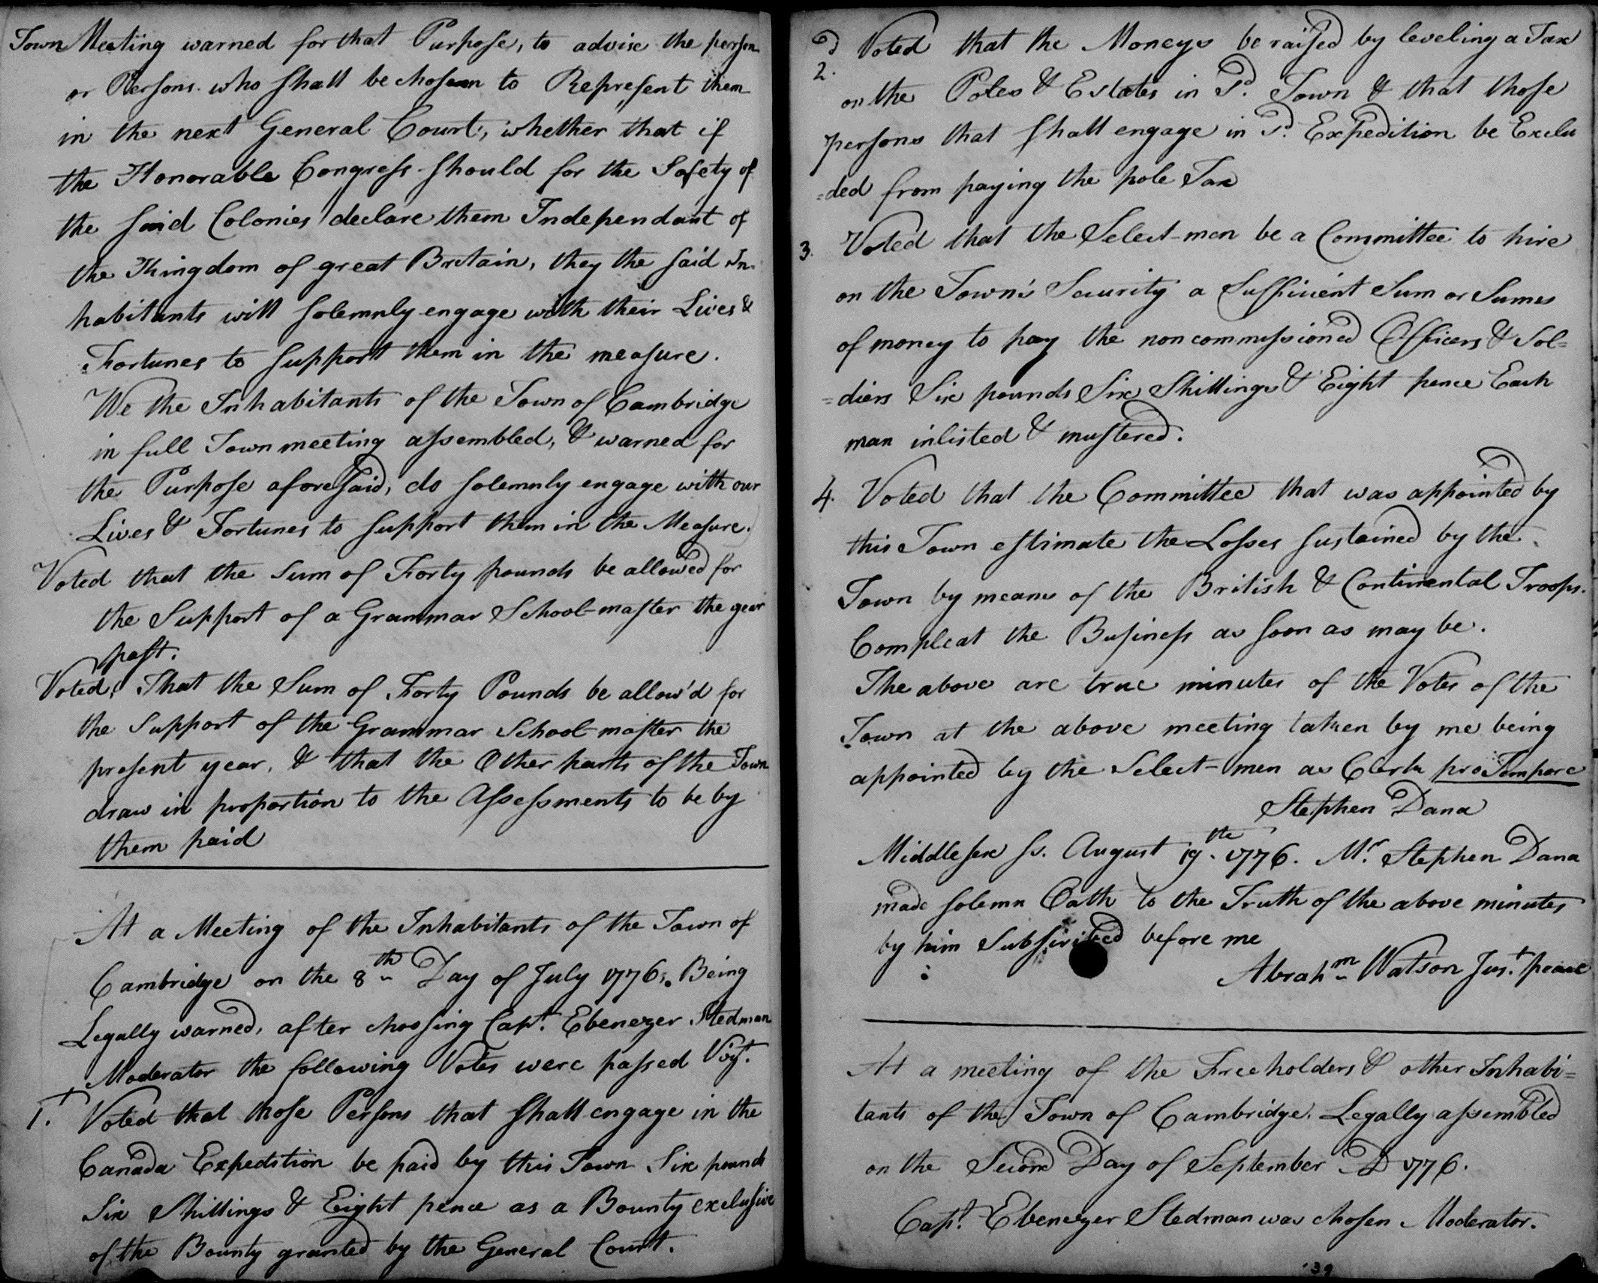 Town Meeting warned for that Purpose, to advise the person
or Persons who shall be chosen to Represent them
in the next General Court, whether that if
the Honorable Congress should for the Safety of
the said Colonies declare them Independant of
the Kingdom of great Britain, they the said In-
habitants will solemnly engage with their Lives &
Fortunes to support them in the measure.
We the Inhabitants of the Town of Cambridge
in full Town meeting assembled, & warned for
the Purpose aforesaid, do solemnly engage with our
Lives & Fortunes to support them in the Measure.
Voted that the Sum of Forty pounds be allowed for
the Support of a Grammar School-master the year
past.
Voted, That the Sum of Forty Pounds be allow'd for
the support of the Grammar School-master the
present year, & that the Other parts of the Town
draw in proportion to the Assessments to be by
them paid
At a Meeting of the Inhabitants of the Town of
Cambridge on the 8th Day of July 1776. Being
Legally warned, after choosing Capt. Ebenezer Stedman
Moderator the following Votes were passed Vizt.
1st. Voted that those Persons that shall engage in the
Canada Expedition be paid by this Town Six pounds
Six Shillings & Eight pence as a Bounty exclusive
of the Bounty granted by the General Court.
2d. Voted that the Moneys be raised by leveling a Tax
on the Poles & Estates in Sd. Town & that those
persons that shall engage in Sd. Expedition be Exclu
=ded from paying the pole Tax
3. Voted that the Select-men be a Committee to hire
on the Town's Security a Sufficient Sum or Sums
of money to pay the noncommissioned Officers & Sol=
=diers Six pounds Six Shillings & Eight pence Each
man inlisted & mustered.
4. Voted that the Committee that was appointed by
this Town estimate the Losses sustained by the
Town by means of the British & Continental Troops.
Compleat the Business as soon as may be.
The above are true minutes of the Votes of the
Town at the above meeting taken by me being
appointed by the Select-men as Clerk pro Tempore
Stephen Dana
Middlesex ss. August 19th. 1776. Mr. Stephen Dana
made solemn Oath to the Truth of the above minutes
by him Subscribed before me
Abrahm Watson Just. peace
At a meeting of the Freeholders & other Inhabi=
tants of the Town of Cambridge, Legally assembled
on the Second Day of September AD 1776.
Capt. Ebenezer Stedman was chosen Moderator.
139